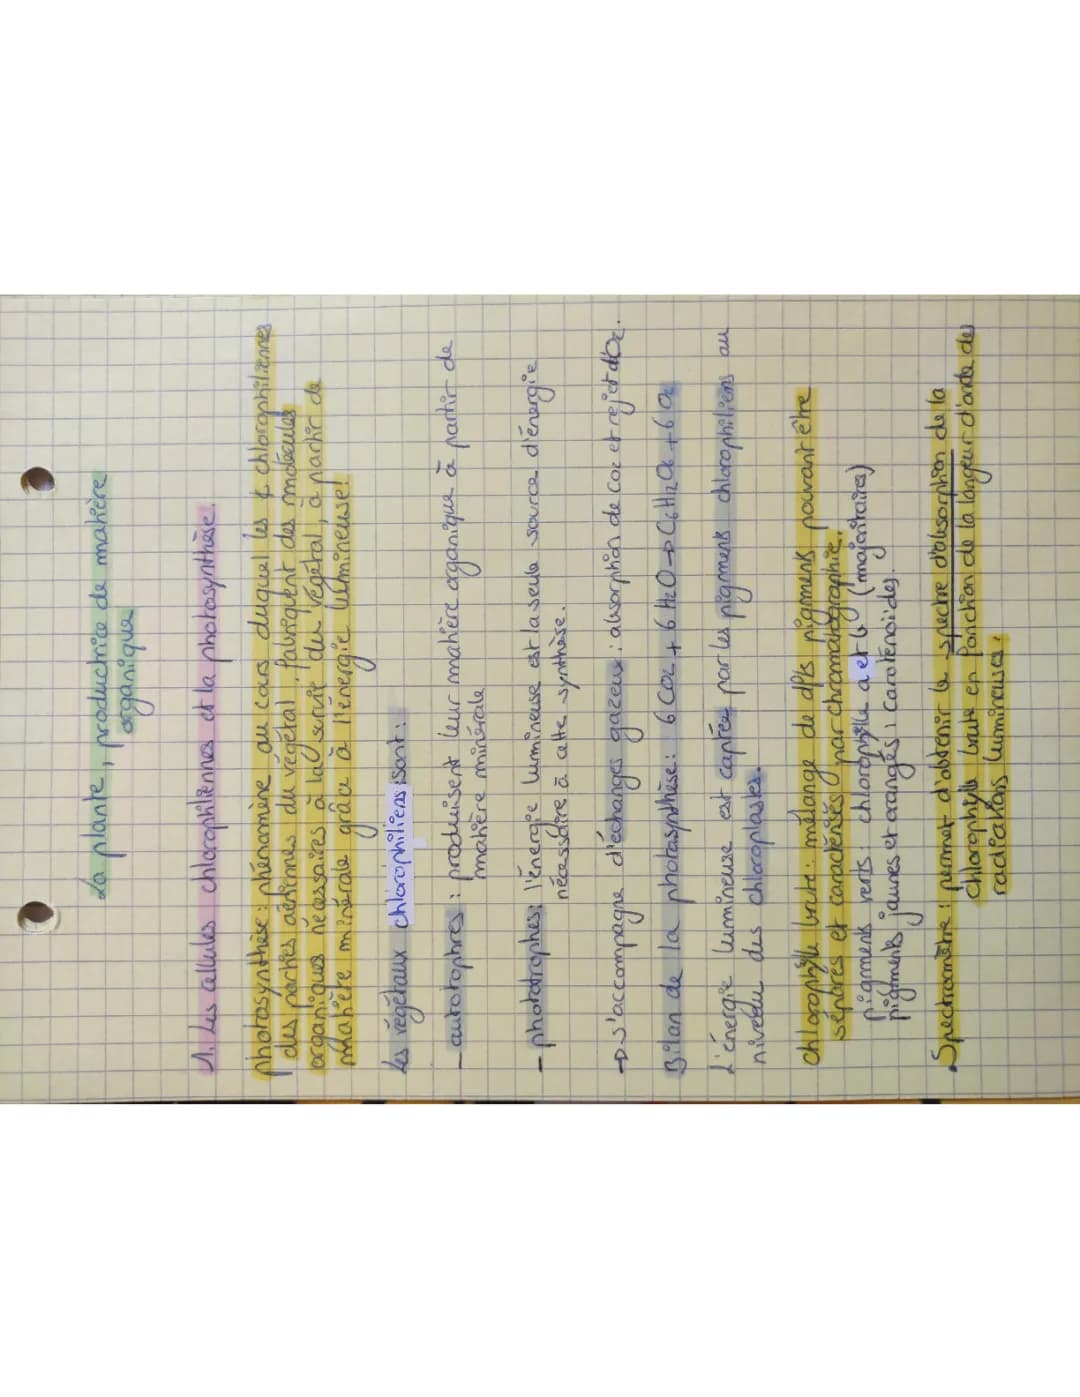 La plante, productrice de matière
organique
1. Les cellules chlorophiliennes et la photosynthèse.
photosynthèse : phénomène au cours duquel les ¢ chlorophiliennes
des parties aériennes du végétal fabriquent des molécules
organiques nécessaires à la survie du végétal, à partir de
matière minérale grâce à l'énergie lumineuse!
Les végétaux chlorophiliens sont :
- autotophres : produisent leur matière organique à partir de
matière minérale
- phototrophes : l'énergie lumineuse est la seule source d'énergie
nécessaire à cette synthèse.
→ s'accompagne d'échanges gazeux : absorption de CO2 et rejet d'O2.
Bilan de la photosynthèse : 6 CO2 + 6 H2O → C6H12O6 + 6 O2
L'énergie lumineuse est captée par les pigments chlorophiliens au
niveau des chloroplastes.
chlorophylle brute : mélange de dfts pigments pouvant être
séparés et caractérisés par chromatographie.
pigments verts : chlorophylle a et b (majoritaires)
pigments jaunes et orangés : caroténoïdes.
Spectromètre : permet d'obtenir le spectre d'absorption de la
chlorophylle brute en fonction de la longeur d'onde des
radiations lumineuses.